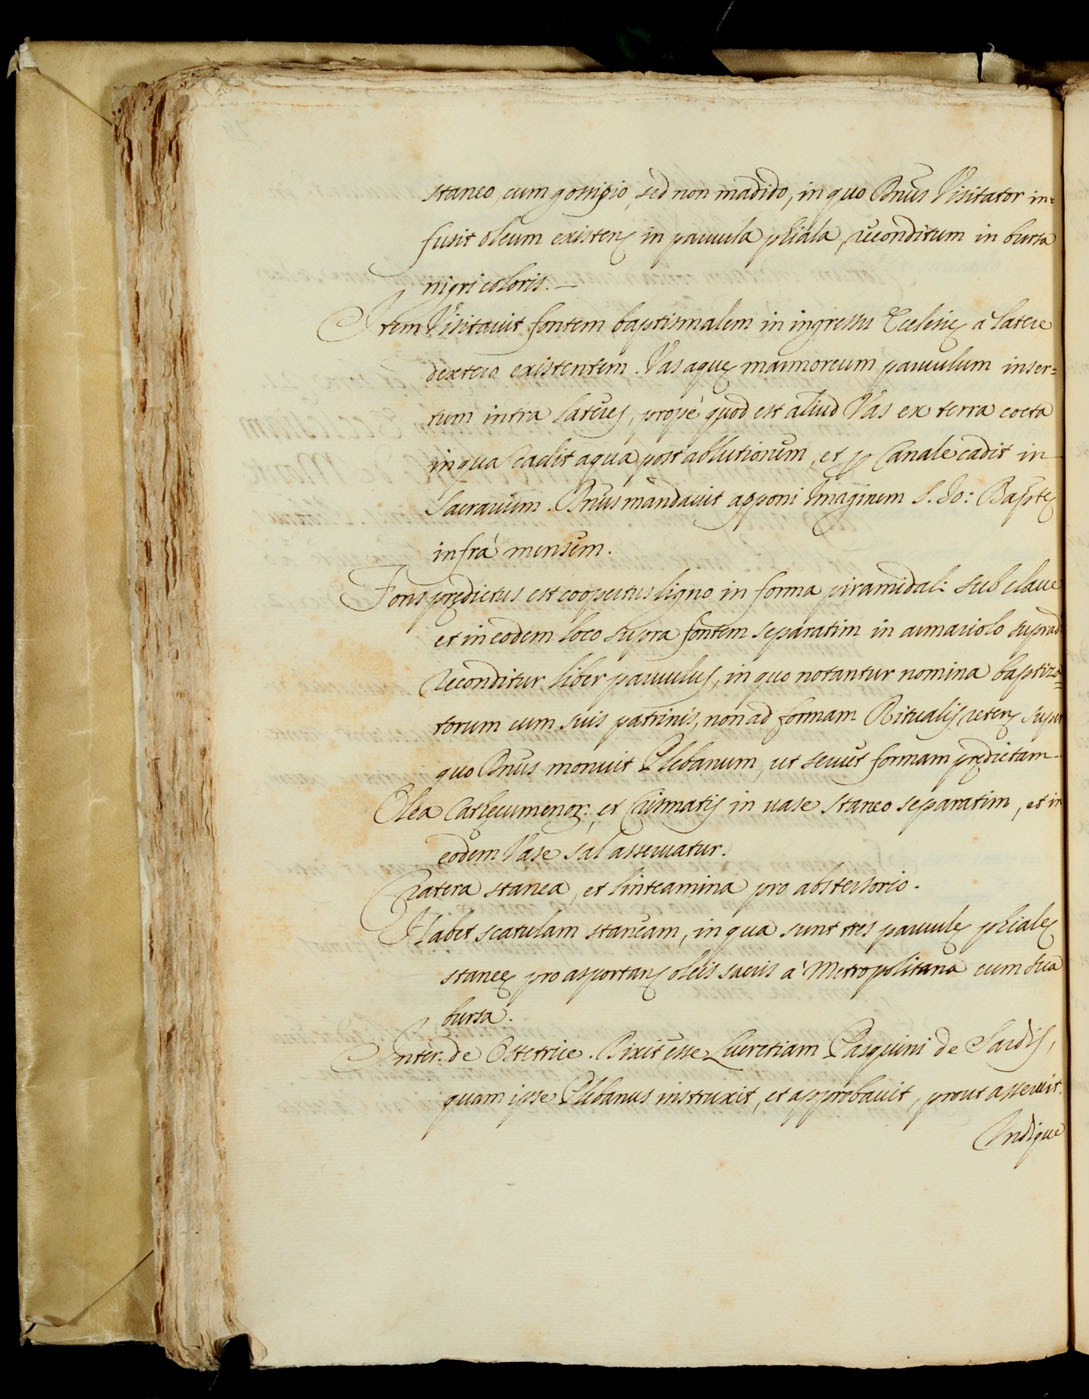 staneo cum gossipio, sed non madido, in quo Dnus Visitator in=
fusit oleum existens in parvula phiala, reconditum in bursa
nigri coloris. —
Item Visitavit fontem baptismalem in ingressu Ecclesię à latere
dextero existentem. Vas aquę marmoreum parvulum inser=
tum intra lateres, propè quod est aliud Vas ex terra cocta
in qua cadit aqua post ablutionem, et p Canale cadit in
Sacrarium. Dnus mandavit apponi Imaginem S. Io: Baptę
infrà mensem.
Fons prędictus est coopertus ligno in forma piramidali sub clave
et in eodem loco supra fontem separatim in armariolo
reconditur liber parvulus, in quo notantur nomina baptiza=
torum cum suis patrinis, non ad formam Ritualis
quo Dnus monuit Plebanum, ut servet formam prędictam
Olea Cathecumenor: et Chrismatis in vase staneo separatim, et in
eodem Vase sal asservatur.
Cratera stanea, et linteamina pro abstersorio.
Habet scatulam staneam, in qua sunt tres parvulę phialę
staneę pro asportans oleis sacris à Metropolitana cum sua
bursa.
Inter: de Obstetrice. Dixit esse Lucretiam Pasquini de Sardis,
quam ipse Plebanus instruxit, et approbavit, prout asseruit.
Indique